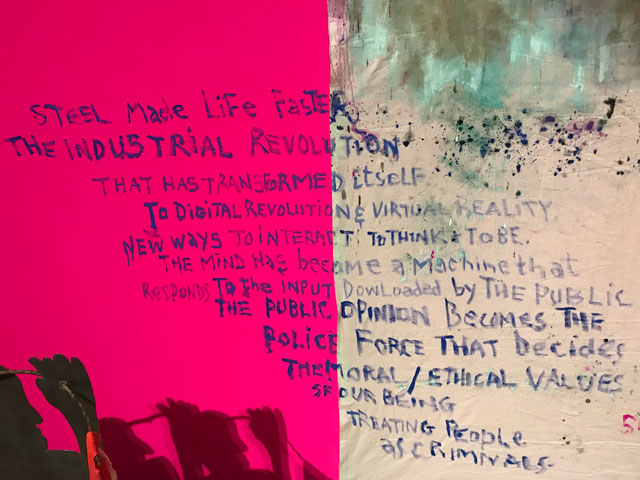 STEEL Made LiFe FaSTER
THE INDUSTRIAL REVOLUTION
THAT HAS TRANSFORMED ITSELF
To DIGITAL REVOLUTION & VIRTUAL REALITY
NEW WAYS TO INTERACT TO THINK & TO BE.
THE MIND HAS become a Machine that
RESPONDS To the INPUT DOWLOADED by THE PUBLIC
THE PUBLIC OPINION BECOMES THE
POLICE FORCE THAT decides
THE MORAL / ETHICAL VALUES
OF OUR BEING
TREATING PEOPLE
as CRIMINALS.